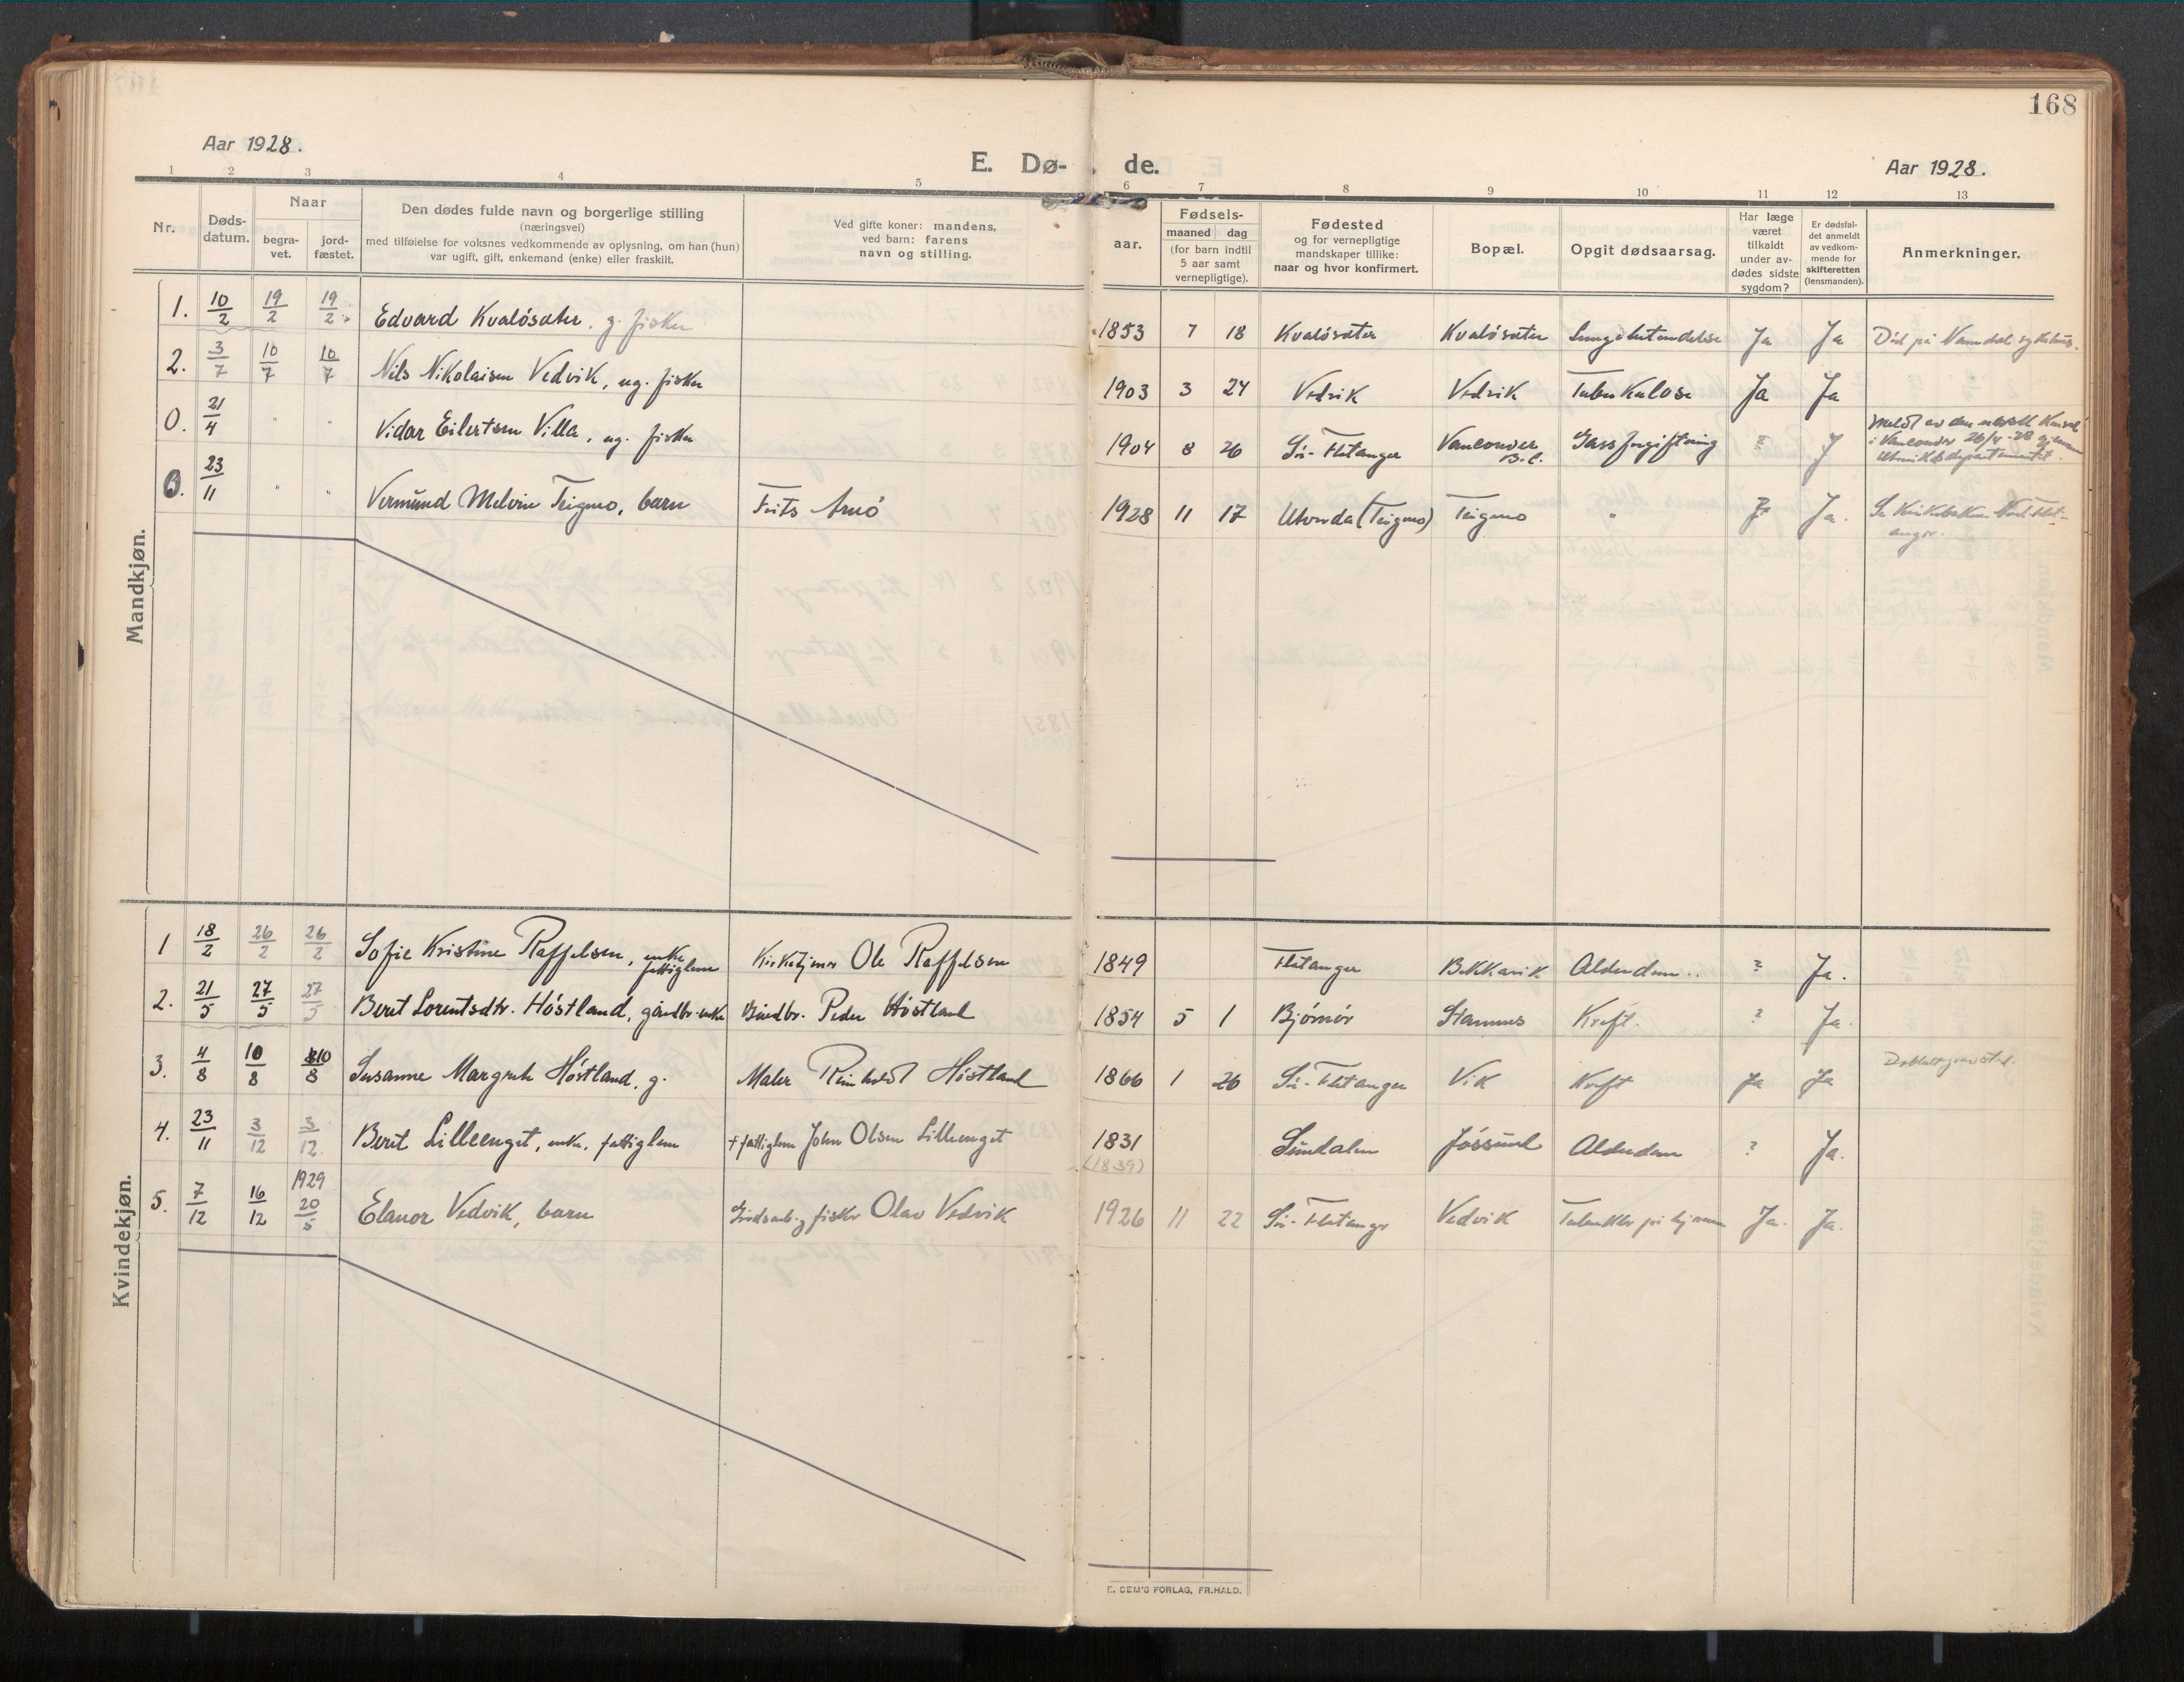 168
Aar 1928.
E. Dø- de.
Aar 1928.
1 2 3 4 5 6 7 8 9 10 11 12 13
Nr.
Døds-
datum.
Naar
begra-
vet.
jord-
fæstet.
Den dødes fulde navn og borgerlige stilling
(næringsvei)
med tilføielse for voksnes vedkommende av oplysning, om han (hun)
var ugift, gift, enkemand (enke) eller fraskilt.
Ved gifte koner: mandens,
ved barn: farens
navn og stilling.
aar.
Fødsels-
maaned dag
(for barn indtil
5 aar samt
vernepligtige).
Fødested
og for vernepligtige
mandskaper tillike:
naar og hvor konfirmert.
Bopæl.
Opgit dødsaarsag.
Har læge
været
tilkaldt
under av-
dødes sidste
sygdom?
Er dødsfal-
det anmeldt
av vedkom-
mende for
skifteretten
(lensmanden).
Anmerkninger.
Mandkjøn.
1. 10/2 19/2 19/2 Edvard Kvaløsæter. g. fisker 1853 7 18 Kvaløsæter Kvaløsæter Lungebetændelse Ja Ja Død på Namdal sykehus.
2. 3/7 10/7 10/7 Nils Nikolaisen Vedvik, ug. fisker 1903 3 24 Vedvik Vedvik Tuberkulose Ja Ja
0. 21/4 " " Vidar Eilertsen Villa, ug. fisker 1904 8 26 Sør-Flatanger Vancouver B.C. Gassforgiftning ? J Meldt av den norske
i Vancouver 26/4-28 gjennem
Utenriksdepartementet.
0. 23/11 " " Vermund Melvin Teigmo, barn Frits Arnø 1928 11 17 Utvorda (Teigmo) Teigmo " ? Ja. Se Kirkeboken Nord Flat-
anger.
Kvindekjøn.
1 18/2 26/2 26/2 Sofie Kristine Raffelsen, enke fattiglem Kirketjener Ole Raffelsen 1849 Flatanger Bekkavik Alderdom.. ? Ja.
2. 21/5 27/5 27/5 Berit Lorentsdtr. Høstland, gårdbr. enke Gårdbr. Peder Høstland 1854 5 1 Bjørnør Stamnes Kreft. ? Ja.
3. 4/8 10/8 10/8 Susanne Margrete Høstland. g. Maler Reinholdt Høstland 1866 1 26 Sør-Flatanger Vik Kreft Ja Ja
4. 23/11 3/12 3/12. Berit Lilleenget, enke, fattiglem + fattiglem John Olsen Lilleenget 1831 (1839) Sundalen Jøssund Alderdom ? Ja.
5. 7/12 16/12 1929 20/5 Elanor Vedvik, barn Grdsarb. og fisker Olav Vedvik 1926 11 22 Sør-Flatanger Vedvik Tuberkler på hjernen Ja. Ja.
E. SEM'S FORLAG, FR.HALD.